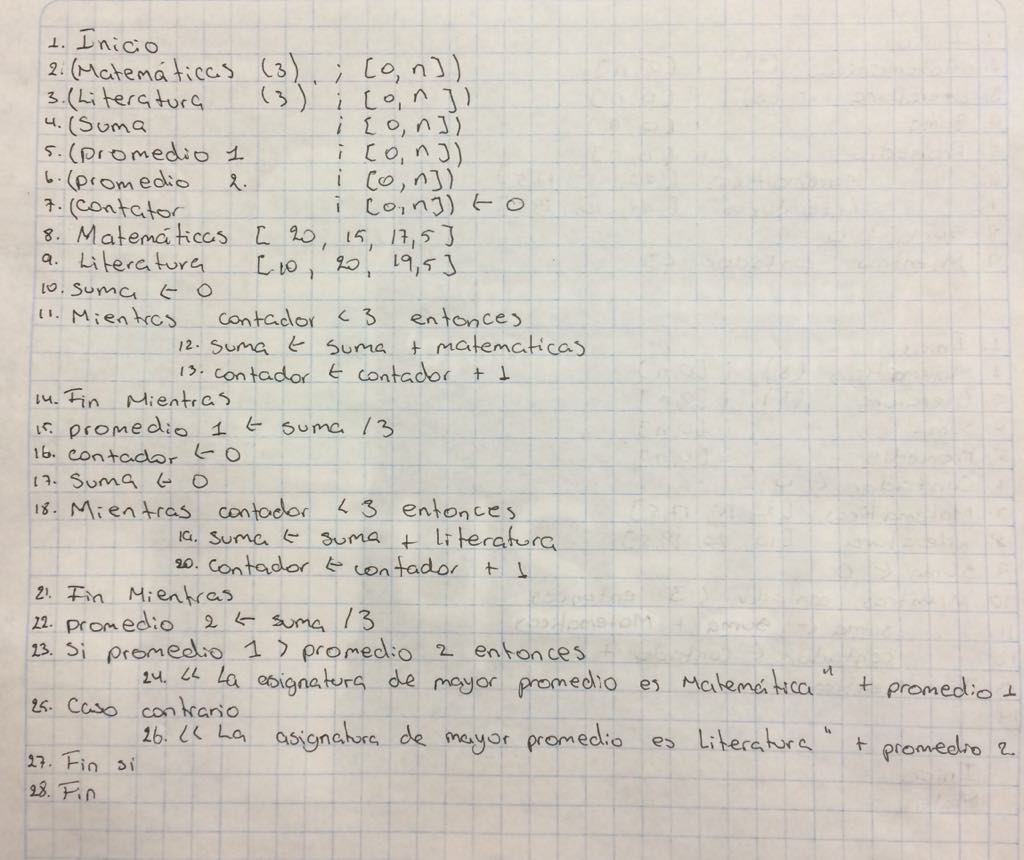 1. Inicio
2. (Matemáticas (3) ; [0, n])
3. (Literatura (3) i [0, n])
4. (Suma i [0, n])
5. (promedio 1 i [0, n])
6. (promedio 2. i [0, n])
7. (contator i [0, n]) ← 0
8. Matemáticas [20, 15, 17,5]
9. Literatura [10, 20, 19,5]
10. suma ← 0
11. Mientras contador < 3 entonces
12. suma ← suma + matematicas
13. contador ← contador + 1
14. Fin Mientras
15. promedio 1 ← suma /3
16. contador ← 0
17. Suma ← 0
18. Mientras contador < 3 entonces
19. suma ← suma + literatura
20. contador ← contador + 1
21. Fin Mientras
22. promedio 2 ← suma /3
23. Si promedio 1 > promedio 2 entonces
24. << La asignatura de mayor promedio es Matemática" + promedio 1
25. Caso contrario
26. << La asignatura de mayor promedio es literatura" + promedio 2
27. Fin si
28. Fin